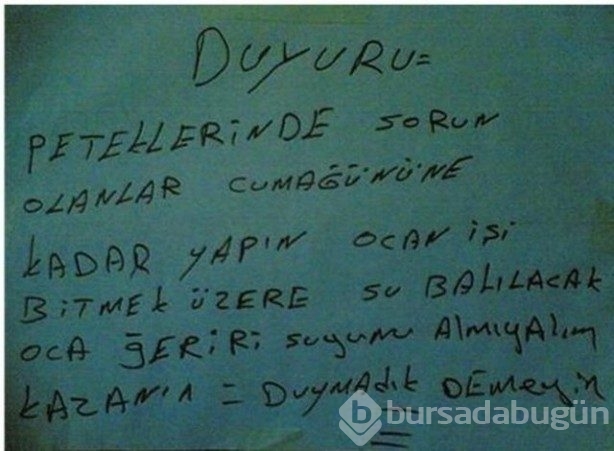 DUYURU=
PETEKLERİNDE SORUN
OLANLAR CUMAĞÜNÜNE
KADAR YAPIN OCAN İŞİ
BİTMEK ÜZERE SU BALILACAK
OCA ĞERİRİ SUYUNU ALMIYALIM
KAZANIN = DUYMADIK DEMEYİN
bursadabugün